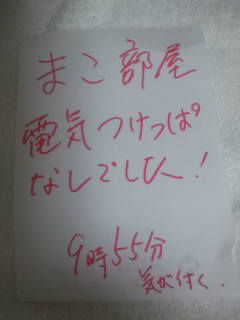 まこ部屋
電気つけっぱ
なしでした!
9時55分
気が付く.